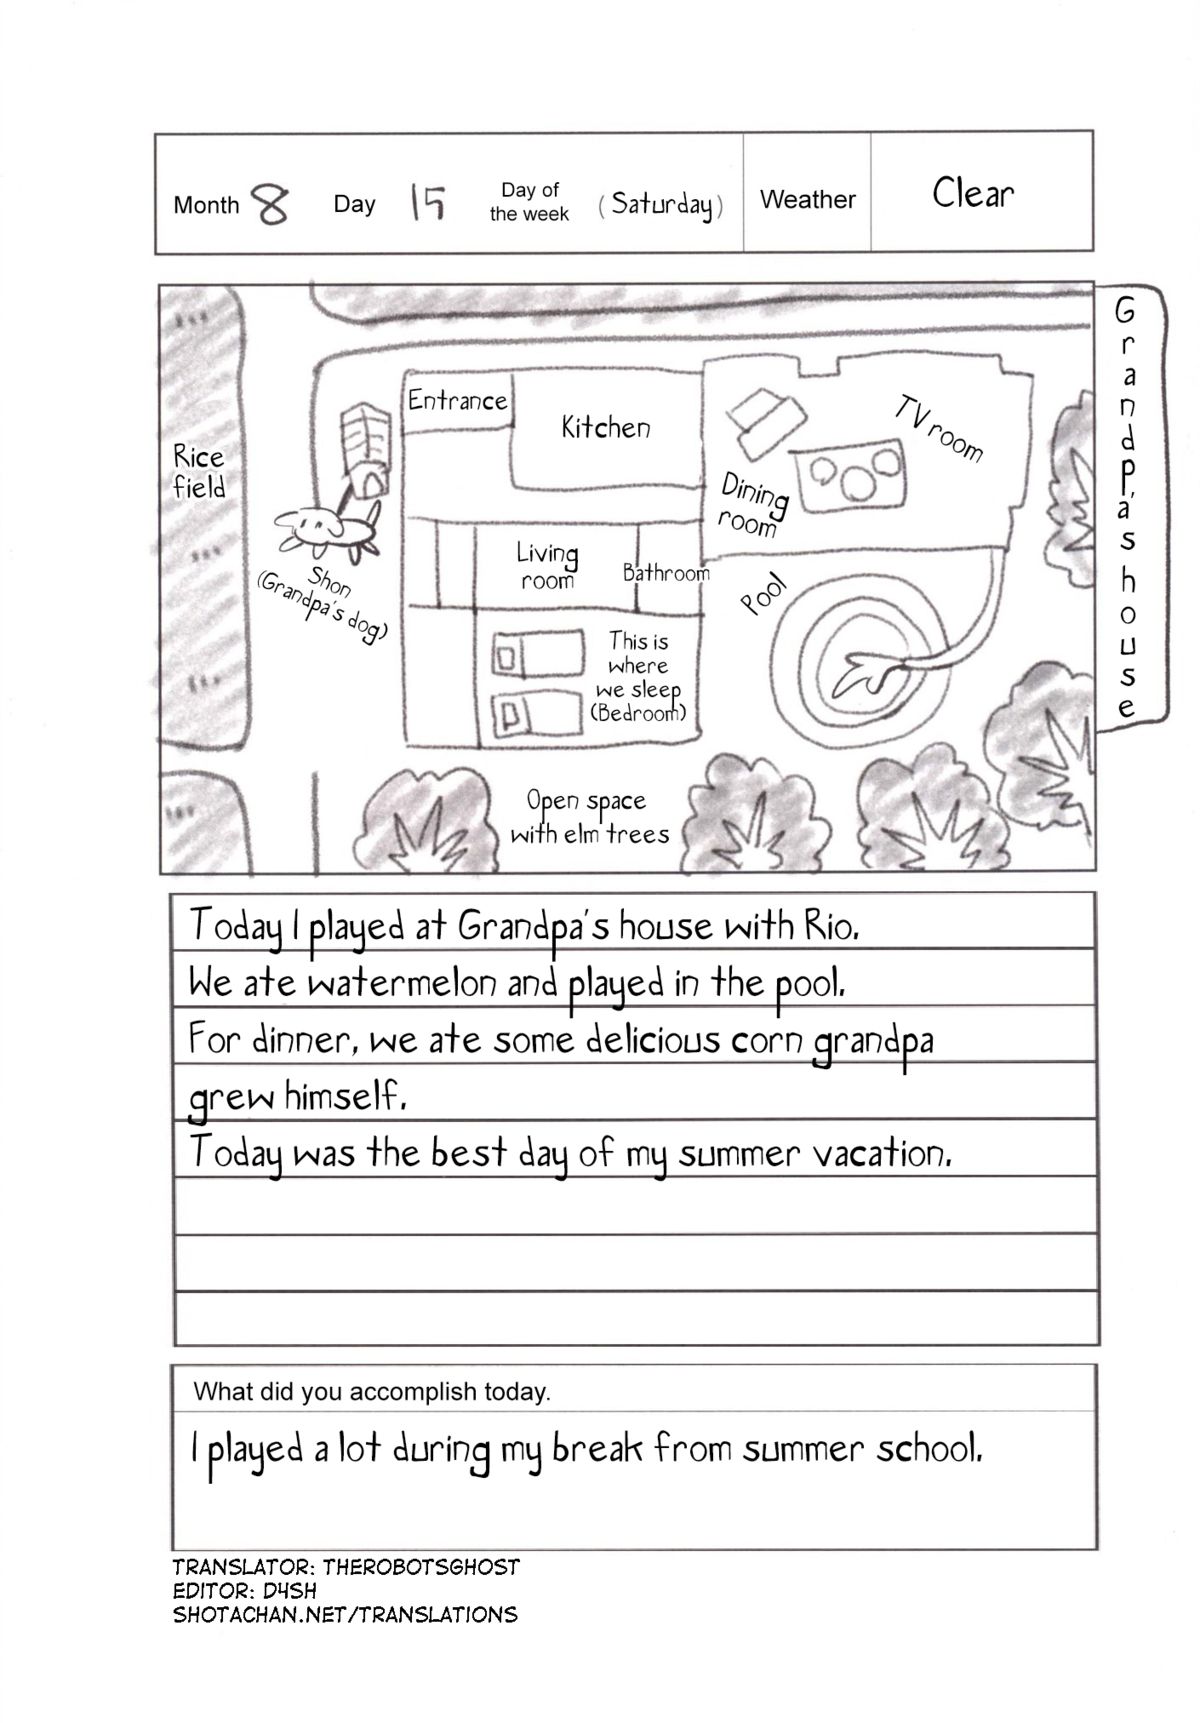 Month 8 Day 15 Day of the week (Saturday) Weather Clear
Grandpa's house
Rice
field
Entrance
Kitchen
TV room
Dining
room
Living
room
Bathroom
Pool
Shon
(Grandpa's dog)
This is
where
we sleep
(Bedroom)
Open space
with elm trees
Today I played at Grandpa's house with Rio.
We ate watermelon and played in the pool.
For dinner, we ate some delicious corn grandpa
grew himself.
Today was the best day of my summer vacation.
What did you accomplish today.
I played a lot during my break from summer school.
TRANSLATOR: THEROBOTSGHOST
EDITOR: D4SH
SHOTACHAN.NET/TRANSLATIONS